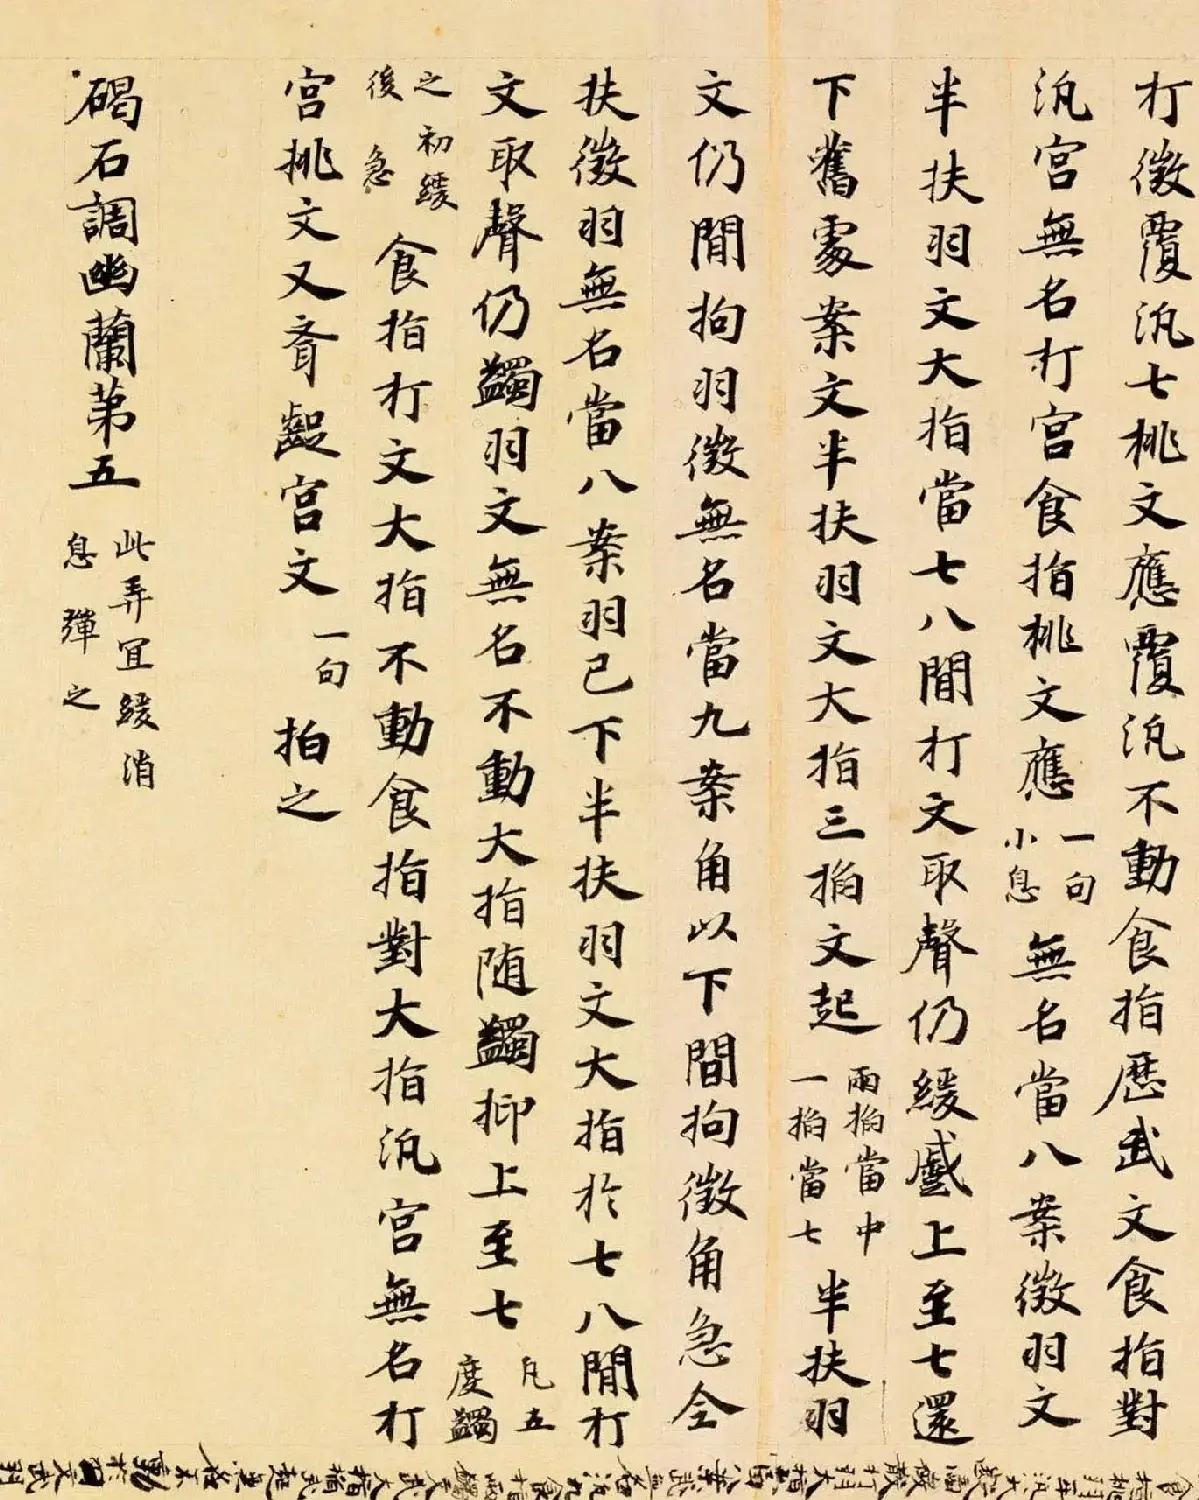 打徵覆汎七挑文應覆汎不動食指歷武文食指對
汎宮無名打宮食指挑文應一句小息無名當八案徵羽文
半扶羽文大指當七八間打文取聲仍緩蹙上至七還
下舊處案文半扶羽文大指三掐文起兩掐當中一掐當七半扶羽
文仍間拘羽徵無名當九案角以下間拘徵角急全
扶徵羽無名當八案羽已下半扶羽文大指於七八間打
文取聲仍蠲羽文無名不動大指随蠲抑上至七凡五度蠲
之初緩後急食指打文大指不動食指對大指汎宮無名打
宮挑文又齊齪宮文一句拍之
碣石調幽蘭第五此弄宜緩消息彈之